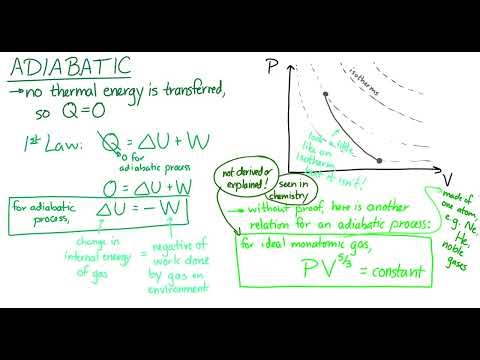 ADIABATIC
→ no thermal energy is transferred,
so Q=0
1st Law: Q = ΔU + W
0 for
adiabatic process
0 = ΔU + W
for adiabatic
process,
ΔU = - W
change in
internal energy
of gas
=
negative of
work done
by gas on
environment
P
isotherms
looks a little
like an
isotherm
but it isn't!
V
not derived or
explained!
seen in
chemistry
→ without proof, here is another
relation for an adiabatic process:
for ideal monatomic gas,
PV^5/3 = constant
made of
one atom,
e.g. Ne,
He,
noble
gases